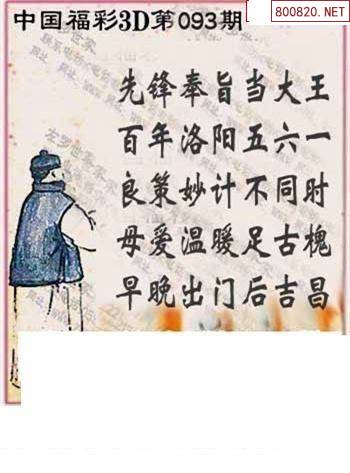 中国福彩3D第093期
800820.NET
先锋奉旨当大王
百年洛阳五六一
良策妙计不同时
母爱温暖足古槐
早晚出门后吉昌